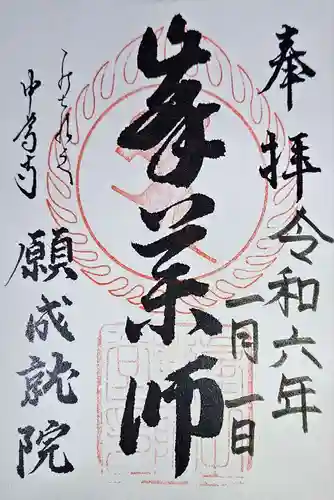 奉拝
令和六年
一月一日
峯薬師
中尊寺
願成就院